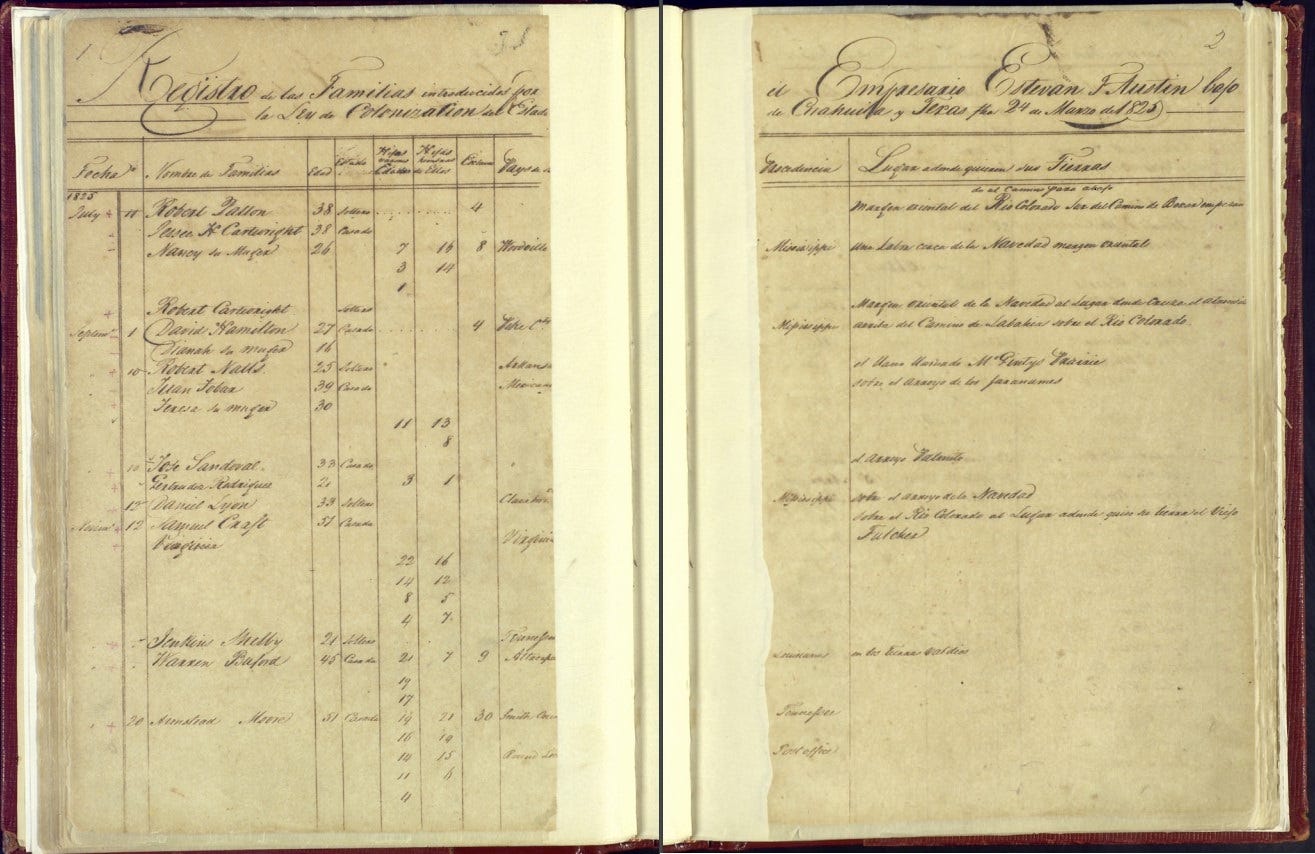 1
2
Registro de las Familias introducidas por el Empresario Estevan F Austin bajo
la Ley de Colonization del Estado de Cuahuila y Texas fha 24 de Marzo de 1825
Fecha Nombre de Familias Edad Estado Hijos varones Edades Hijas hembras de Ellos Esclavos Lugar adonde quieren sus Tierras
1825
de el Camino para abajo
July 11 Robert Patton 38 Soltero 4 Margen oriental del Rio Colorado Sur del Camino de Bexar
Cartwright 38 Casado
Nancy su Muger 26 7 16 8 Woodville Missisippi una Labor cerca de la Navedad margen oriental
3 14
1
Robert Cartwright Soltero Margen oriental de la Navedad al Lugar donde cruza el
Septem 1 David Hamilton 27 Casado 4 Missisippi arriba del Camino de Labahia sobre el Rio Colorado
Dianah su muger 16
10 Robert Nalls 25 Soltero Arkansa el Llano llamado Prairie
Juan Tobar 39 Casado Mexicano sobre el arroyo de los
Teresa su muger 30
11 13
8
10 Jose Sandoval 33 Casado el arroyo
Gertrudes Rodriguez 21 3 1
12 Daniel Lyon 33 Soltero Missisippi sobre el arroyo de la Navedad
12 Samuel Craft 51 Casado sobre el Rio Colorado al Lugar adonde quiso su tierra el Viejo
Virginia Virginia Fulcher
22 16
14 12
8 5
4 7
Jenkins 21 Soltero Tennessee
Warren Buford 45 Casado 21 7 9 Louisiana en las tierras valdias
19
17
20 Armstead Moore 51 Casado 19 21 30 Smith Tennessee
16 19
14 15 Post office
11 6
4